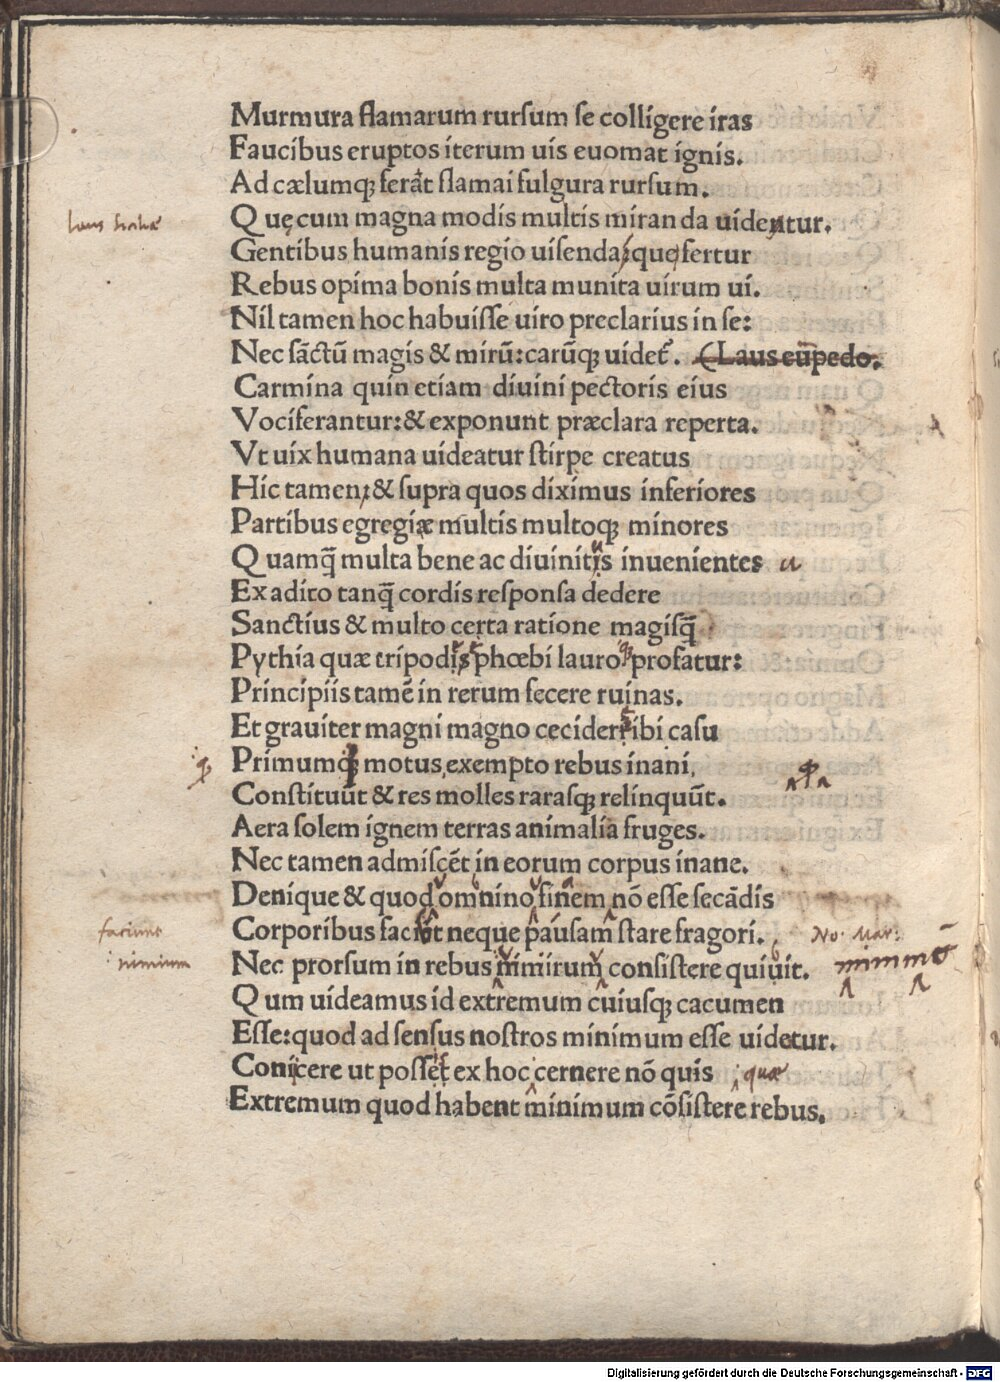 Murmura flamarum rursum se colligere iras
Faucibus eruptos iterum uis euomat ignis.
Ad cælumq; ferāt flamai fulgura rursum.
laus Sicilie
Quęcum magna modis multis miranda uidentur.
Gentibus humanis regio uisenda, que fertur
Rebus opima bonis multa munita uirum ui.
Nil tamen hoc habuisse uiro preclarius in se:
Nec sāctū magis & mirū: carūq; uidet̄. (Laus eūpedo.
Carmina quin etiam diuini pectoris eius
Vociferantur: & exponunt præclara reperta.
Vt uix humana uideatur stirpe creatus
Hic tamen, & supra quos diximus inferiores
Partibus egregiæ multis multoq; minores
Quamq̄ multa bene ac diuinitis inuenientes u
Ex adito tanq̄ cordis responsa dedere
Sanctius & multo certa ratione magisq̄
Pythia quæ tripodis phœbi lauro profatur:
Principiis tamē in rerum fecere ruinas.
Et grauiter magni magno cecider ibi casu
Primumq; motus exempto rebus inani,
Constituūt & res molles rarasq; relinquūt.
Aera solem ignem terras animalia fruges.
Nec tamen admiscēt in eorum corpus inane.
Denique & quod omnino finem nō esse secādis
faciunt
Corporibus faciūt neque pausam stare fragori. No. Mar:
nimium
Nec prorsum in rebus minirum consistere quiuit.
Qum uideamus id extremum cuiusq; cacumen
Esse: quod ad sensus nostros minimum esse uidetur.
Coniicere ut posset ex hoc cernere nō quis quæ
Extremum quod habent minimum cōsistere rebus.
Digitalisierung gefördert durch die Deutsche Forschungsgemeinschaft - DFG